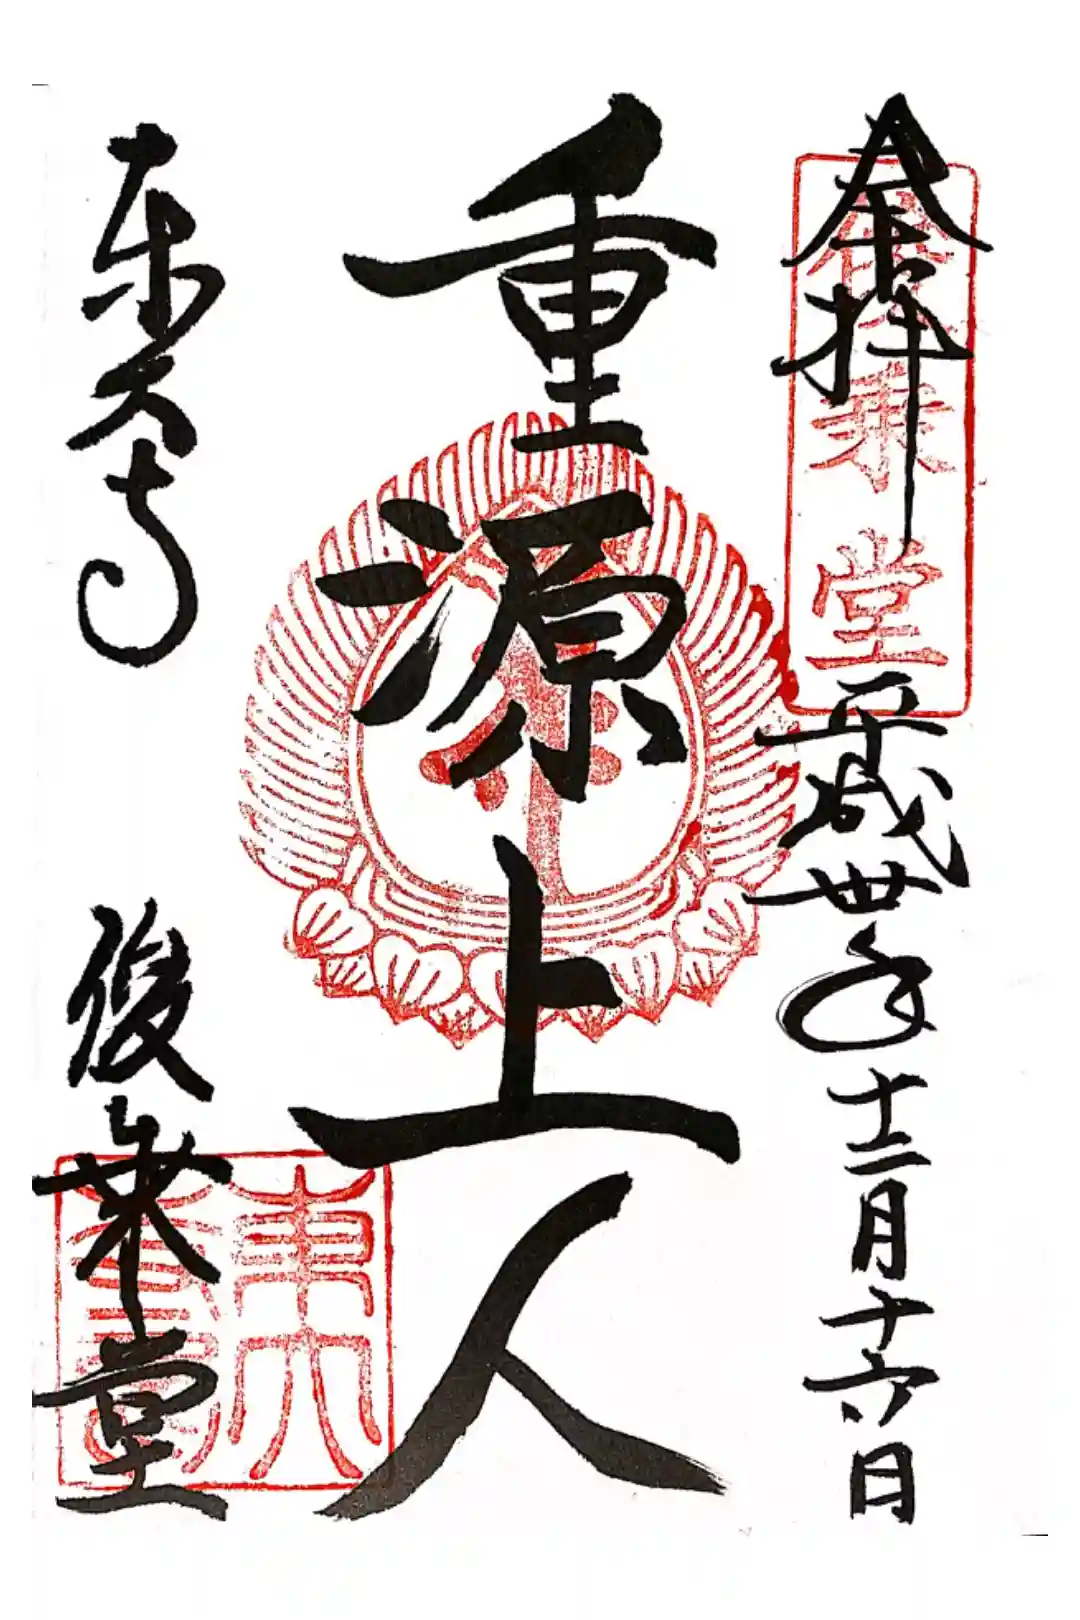 奉拝 平成卅年十二月十六日
俊乗堂
重源上人
東大寺 俊乗堂
東大